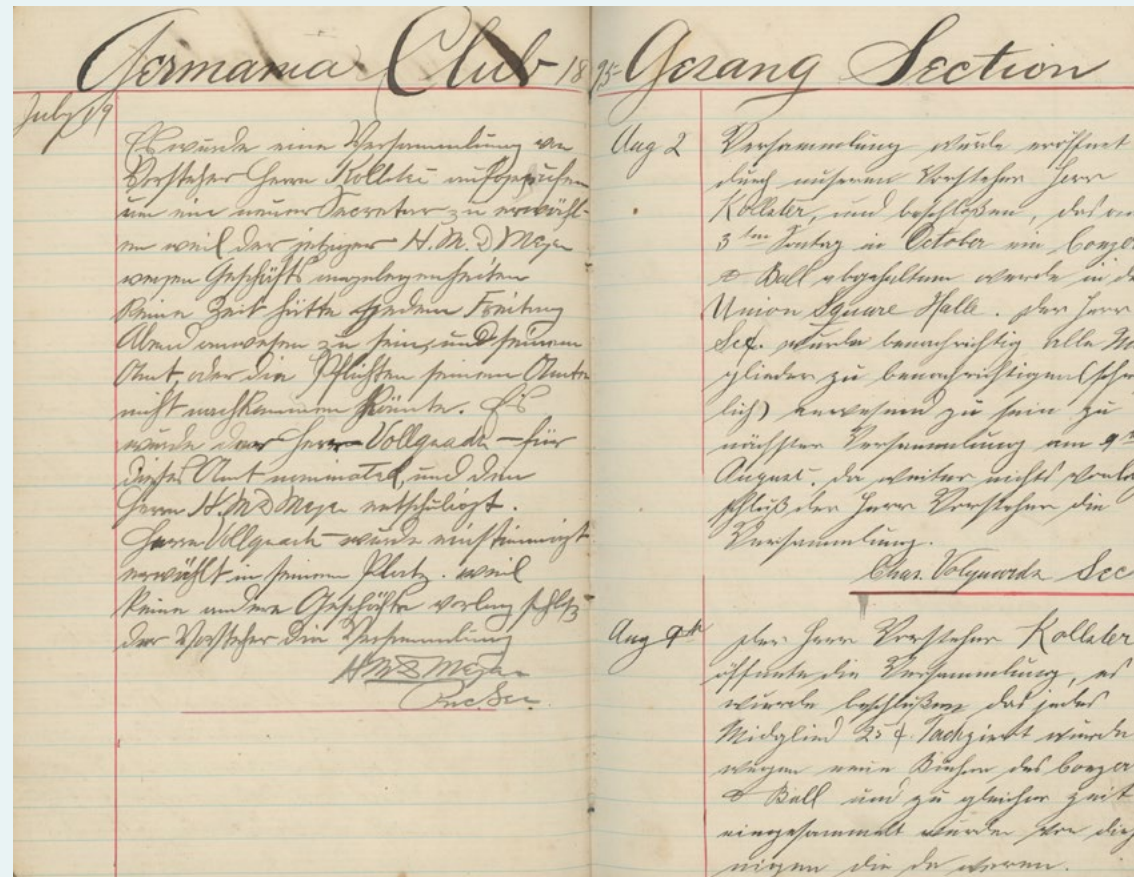 Germania Club 1895 Gesang Section
July 19
Es wurde eine Versammlung von
Vorsteher Herrn aufgerufen
um ein neuer Secretär zu erwähl-
en weil der jetziger H. M. D Meyer
wegen Geschäfts angelegenheiten
keine Zeit hätte jedem Freitag
Abend anwesen zu sein, und seinem
Amt, oder die Pflichten seinem Amtes
nicht nachkommen könnte. Es
wurde der Herr – Vollquardt – für
dieses Amt, und den
Herrn H. M D Meyer entschuligt.
Herrn Vollquardt wurde einstimmigt
erwählt in seinem Platz. weil
keine andere Geschäfte vorlag schloß
der Vorsteher die Versammlung
H M D Meyer
Rec. Sec.
Aug 2
Versammlung wurde eröffnet
durch unseren Vorsteher Herr
Kollster, und beschloßen, das am
3ten Sontag in October ein Conzer
& Ball abgehalten werde in de
Union Square Halle. Der Herr
Sec. wurde benachrichtig alle Mit
glieder zu benachrichtigen (schri
lich) anwesend zu sein zu
nächster Versammlung am 9
August. Da weiter nichts vorla
schluß der Herr Vorsteher die
Versammlung.
Chas. Volquards Sec
Aug 9th
Der Herr Vorsteher Kollster
öffnete die Versammlung, es
wurde beschloßen das jedes
Midglied 25 ¢ wurde
wegen neue Bücher des Conzer
& Ball und zu gleicher Zeit
eingesammelt wurde von die
nigen die da waren.